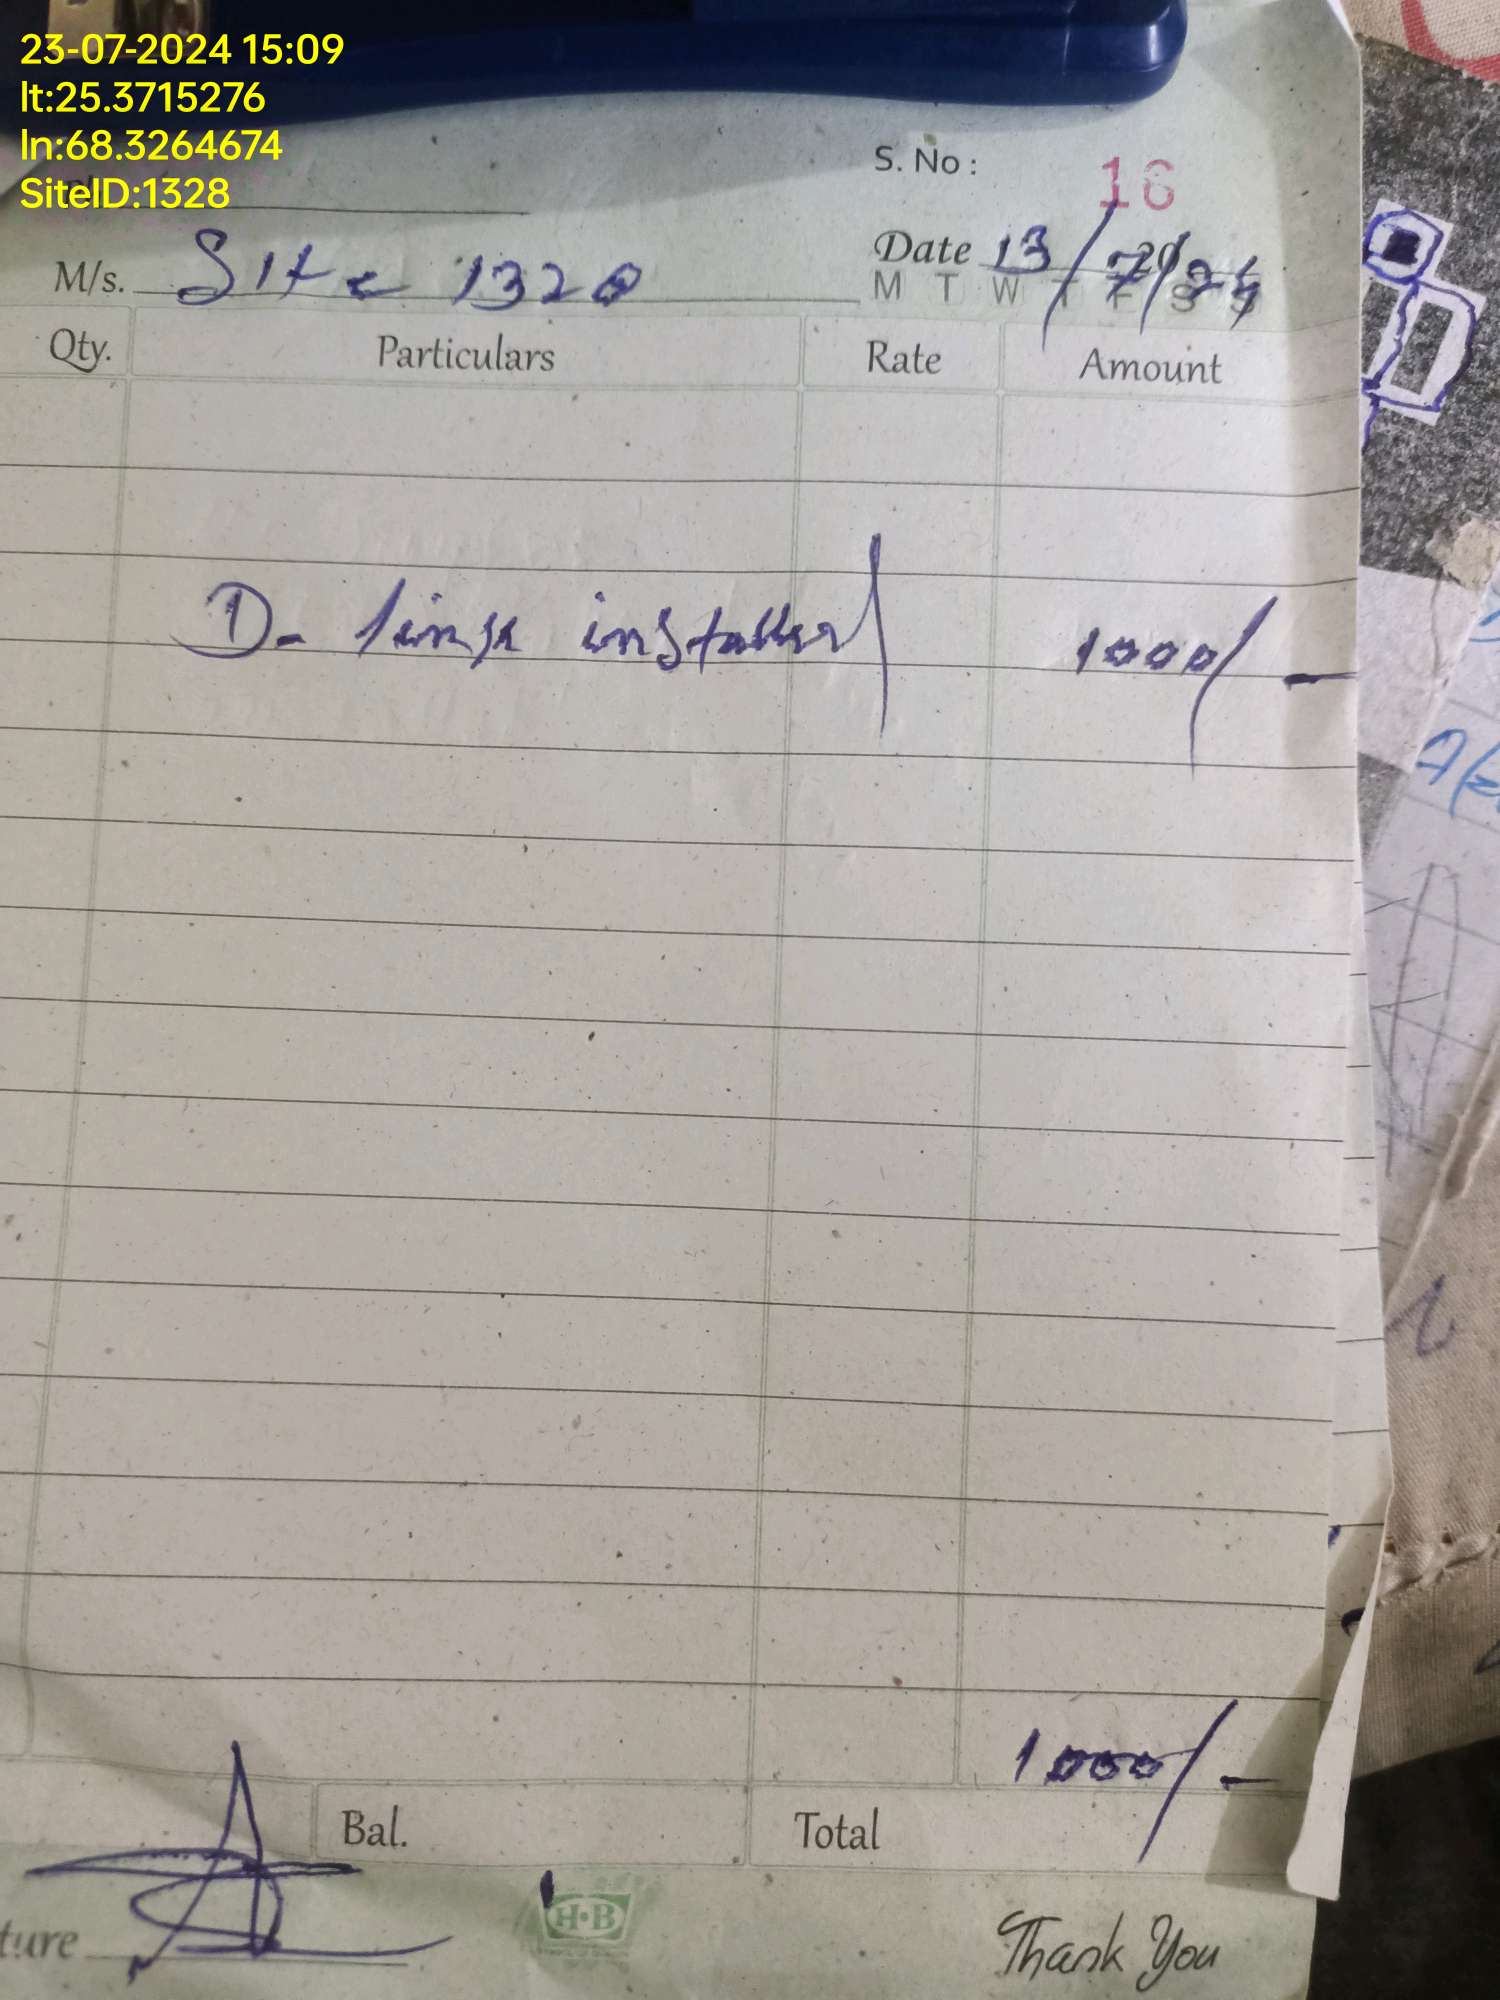 23-07-2024 15:09
lt:25.3715276
ln:68.3264674
SiteID:1328
S. No : 16
M/s. Site 1320
Date 13/7/24
20
M T W T F S S
Qty. Particulars Rate Amount
D- link installer 1000/-
1000/-
Bal. Total
ture
H·B
Thank You